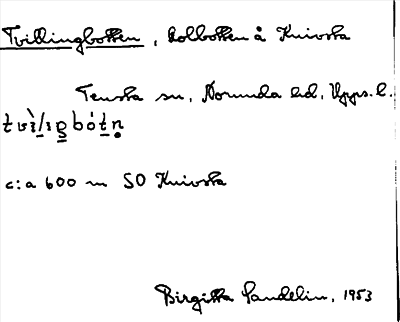 Tvillingbotten, Kolbotten å Knivsta
Tensta sn, Norunda hd, Upps. l.
c:a 600 m SO Knivsta
Birgitta Sandelin, 1953